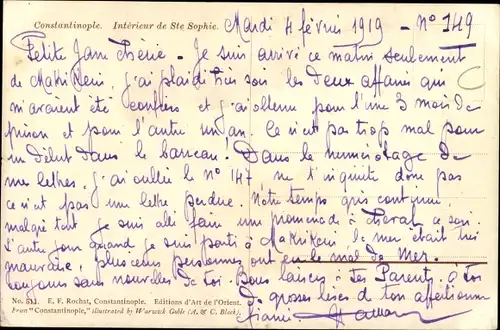 Constantinople. Intérieur de Ste Sophie.
Mardi 4 février 1919 - N° 149
Petite Jane Chérie - Je suis arrivé ce matin seulement
de Makrikeni, j'ai plaidé hier soir les deux affaires qui
m'avaient été confiées et j'ai obtenu pour l'une 3 mois de
prison et pour l'autre un an. Ce n'est pas trop mal pour
un début dans le barreau! Dans le numérotage de
mes lettres, j'ai oublié le n° 147 ne t'inquiète donc pas
ce n'est pas une lettre perdue. Notre temps gris continue,
malgré tout je suis allé faire une promenade à cheval ce soir.
L'autre jour quand je suis parti à Makrikeni la mer était très
mauvaise, plusieurs personnes ont eu le mal de Mer.
Toujours sans nouvelles de toi. Bons baisers à tes Parents, à toi
de grosses bises d'ton affectionné
fiancé.
No. 511. E. F. Rochat, Constantinople. Editions d'Art de l'Orient.
From "Constantinople," illustrated by Warwick Goble (A. & C. Black).